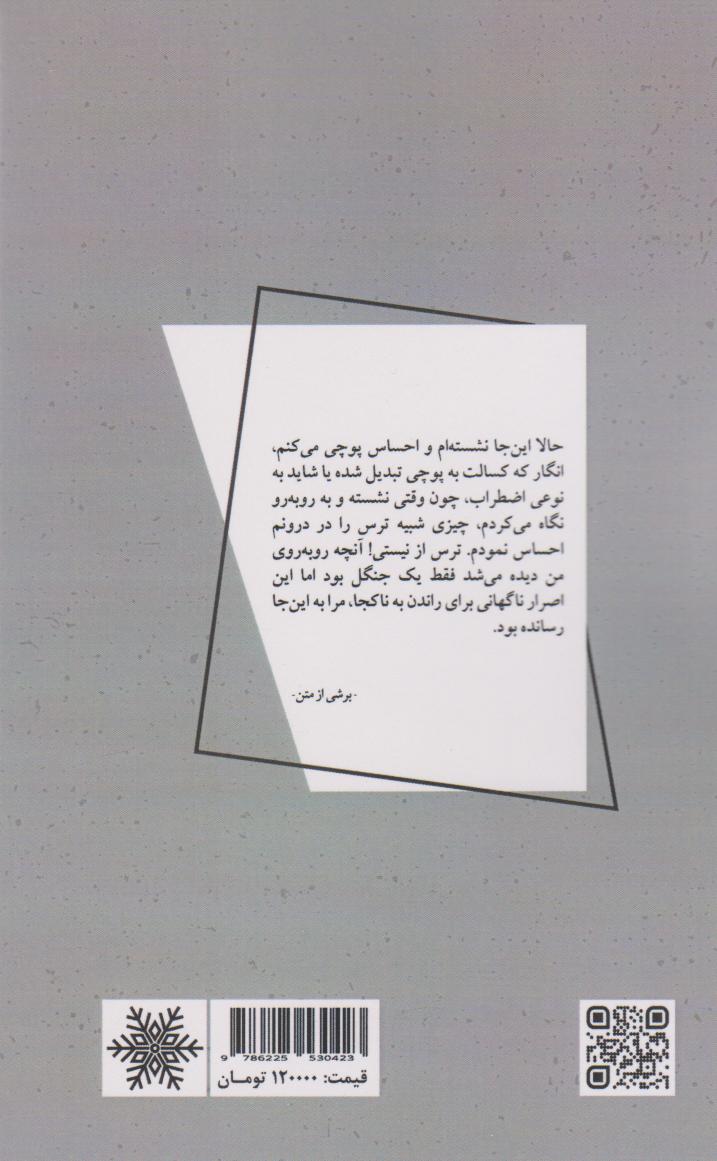 حالا این‌جا نشسته‌ام و احساس پوچی می‌کنم،
انگار که کسالت به پوچی تبدیل شده یا شاید به
نوعی اضطراب، چون وقتی نشسته و به روبه‌رو
نگاه می‌کردم، چیزی شبیه ترس را در درونم
احساس نمودم. ترس از نیستی! آنچه روبه‌روی
من دیده می‌شد فقط یک جنگل بود اما این
اصرار ناگهانی برای راندن به ناکجا، مرا به این‌جا
رسانده بود.
-برشی از متن-
9 786225 530423
قیمت: ۱۲۰۰۰۰ تومـان